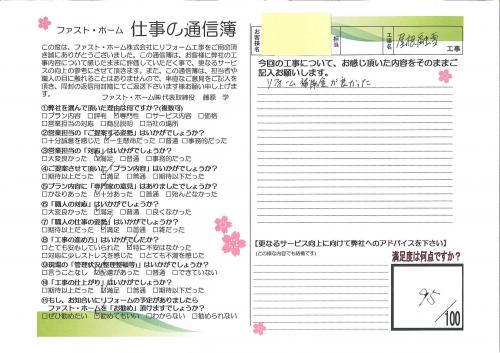 ファスト・ホーム 仕事の通信簿
この度は、ファスト・ホーム株式会社にリフォーム工事をご用命頂き
誠にありがとうございました。この通信簿は、お客様に弊社の工
事内容について感じたままに評価していただく事で、更なるサービ
スの向上の参考にさせて頂きます。また、この通信簿は、担当者や
職人の目に触れることはありませんので、率直なご意見をご記入を
頂き、同封の返信用封筒にてご返送下さいます様お願い申し上げま
す。
ファスト・ホーム㈱代表取締役 藤原 学
①弊社を選んで頂いた理由は何ですか?(複数可)
□プラン内容 □評判 ☑専門性 □サービス内容 □価格
□営業担当の対応 □商品説明 □当社の場所
②営業担当の「ご提案する姿勢」はいかがでしょうか?
□十分誠意を感じた ☑一生懸命だった □普通 □事務的だった
③営業担当の「対応」はいかがでしょうか?
□大変良かった ☑満足 □普通 □事務的だった
④ご提案させて頂いた「プラン内容」はいかがでしょうか?
□期待以上だった ☑満足 □普通 □期待以下だった
⑤プラン内容に「専門家の意見」はありましたでしょうか?
□かなりあった ☑十分あった □普通 □殆んどなかった
⑥「職人の対応」はいかがでしょうか?
□大変良かった ☑満足 □普通 □良くなかった
⑦「職人の仕事の姿勢」はいかがでしょうか?
□期待以上だった ☑満足 □普通 □雑だった
⑧「工事の進め方」はいかがでしたか?
□とても安心していられた ☑特に不安はなかった
□対応に少しストレスを感じた □とても不満を感じた
⑨現場の「管理状況(整理整頓等)」はいかがでしょうか?
□言うことなし ☑配慮があった □普通 □できていない
⑩「工事の仕上がり」はいかがでしょうか?
□期待以上だった ☑満足 □普通 □期待以下だった
⑪もし、お知合いにリフォームの予定がありましたら
ファスト・ホームを「お勧め」頂けますでしょうか?
□ぜひ勧めたい ☑勧めてもいい □わからない □勧められない
お客様名
担当
工事名
屋根
工事
今回の工事について、お感じ頂いた内容をそのままご
記入お願いします。
リフォーム
が良かった
【更なるサービス向上に向けて弊社へのアドバイスを下さい】
(どの様な内容でも結構です)
満足度は何点ですか?
95
/100